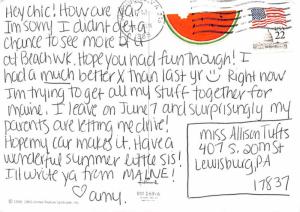 Hey Chic! How are ya?
I'm sorry I didn't get a
chance to see more of U
at Beach wk. Hope you had fun though! I
had a much better X than last yr ☺ Right now
I'm trying to get all my stuff together for
maine. I leave on June 7 and surprisingly my
parents are letting me drive!
Hope my car makes it. Have a
wonderful summer Little Sis!
I'll write ya from MAINE!
♡ amy.
USA
22
Miss Allison Tufts
407 S. 20th St
Lewisburg, PA
17837